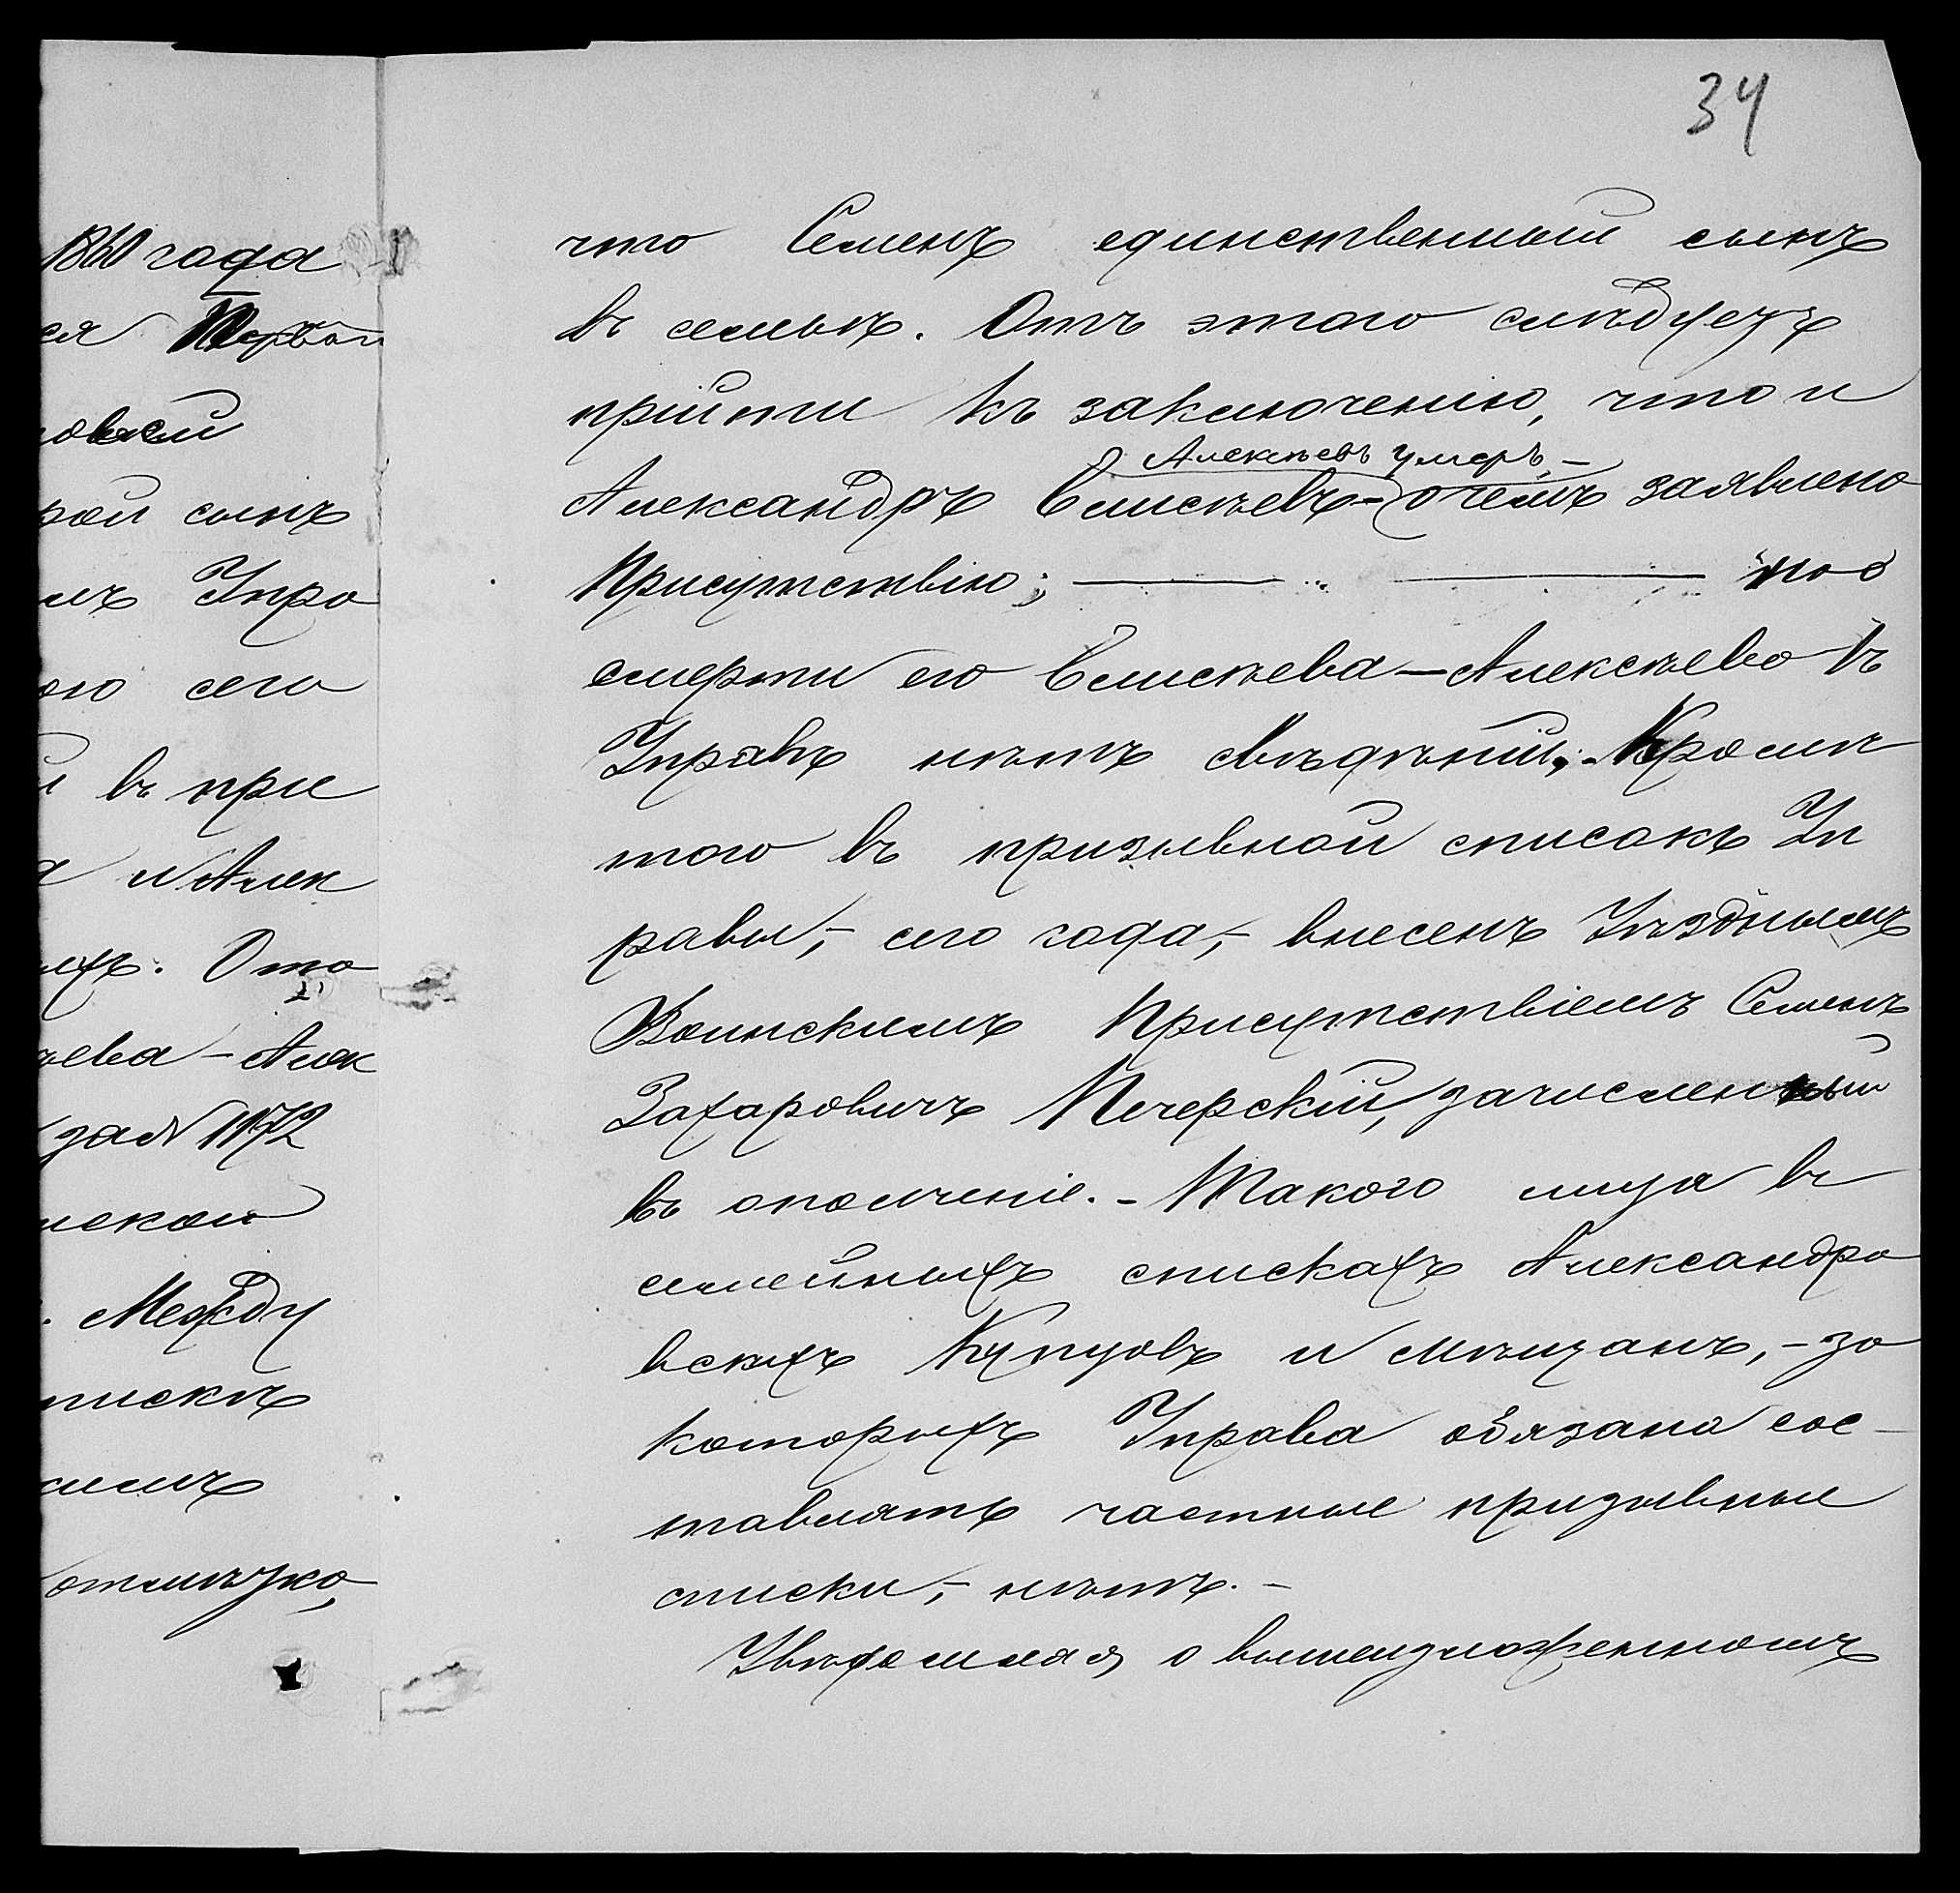 34
1860 года
ся
овской
рой сынъ
мъ Упра
ою сего
й въ при
а и Алек
ыхъ. Ото
ѣева - Алек
за № 1172
нской
. Между
писки
отмѣтка,
что Семенъ единственный сынъ
въ семьѣ. Отъ этого слѣдуетъ
прійти къ заключенію, что и
Алексѣевъ умеръ, -
Александръ Елисѣевъ - о чемъ заявлено
Присутствію; об
смерти его Елисѣева - Алексѣева въ
Управѣ нѣтъ свѣдѣній; Кромѣ
того въ призывной списокъ Уп
равы, - сего года, - внесенъ Уѣзднымъ
Воинскимъ Присутствіемъ Семенъ
Захаровичъ Печерскій, зачисленный
въ ополченіе. - Такого лица въ
семейныхъ спискахъ Александро
вскихъ Купцовъ и мѣщанъ, - за
которыхъ Управа обязана сос-
тавлять частные призывные
списки, - нѣтъ. -
Увѣдомляя о вышеизложенномъ